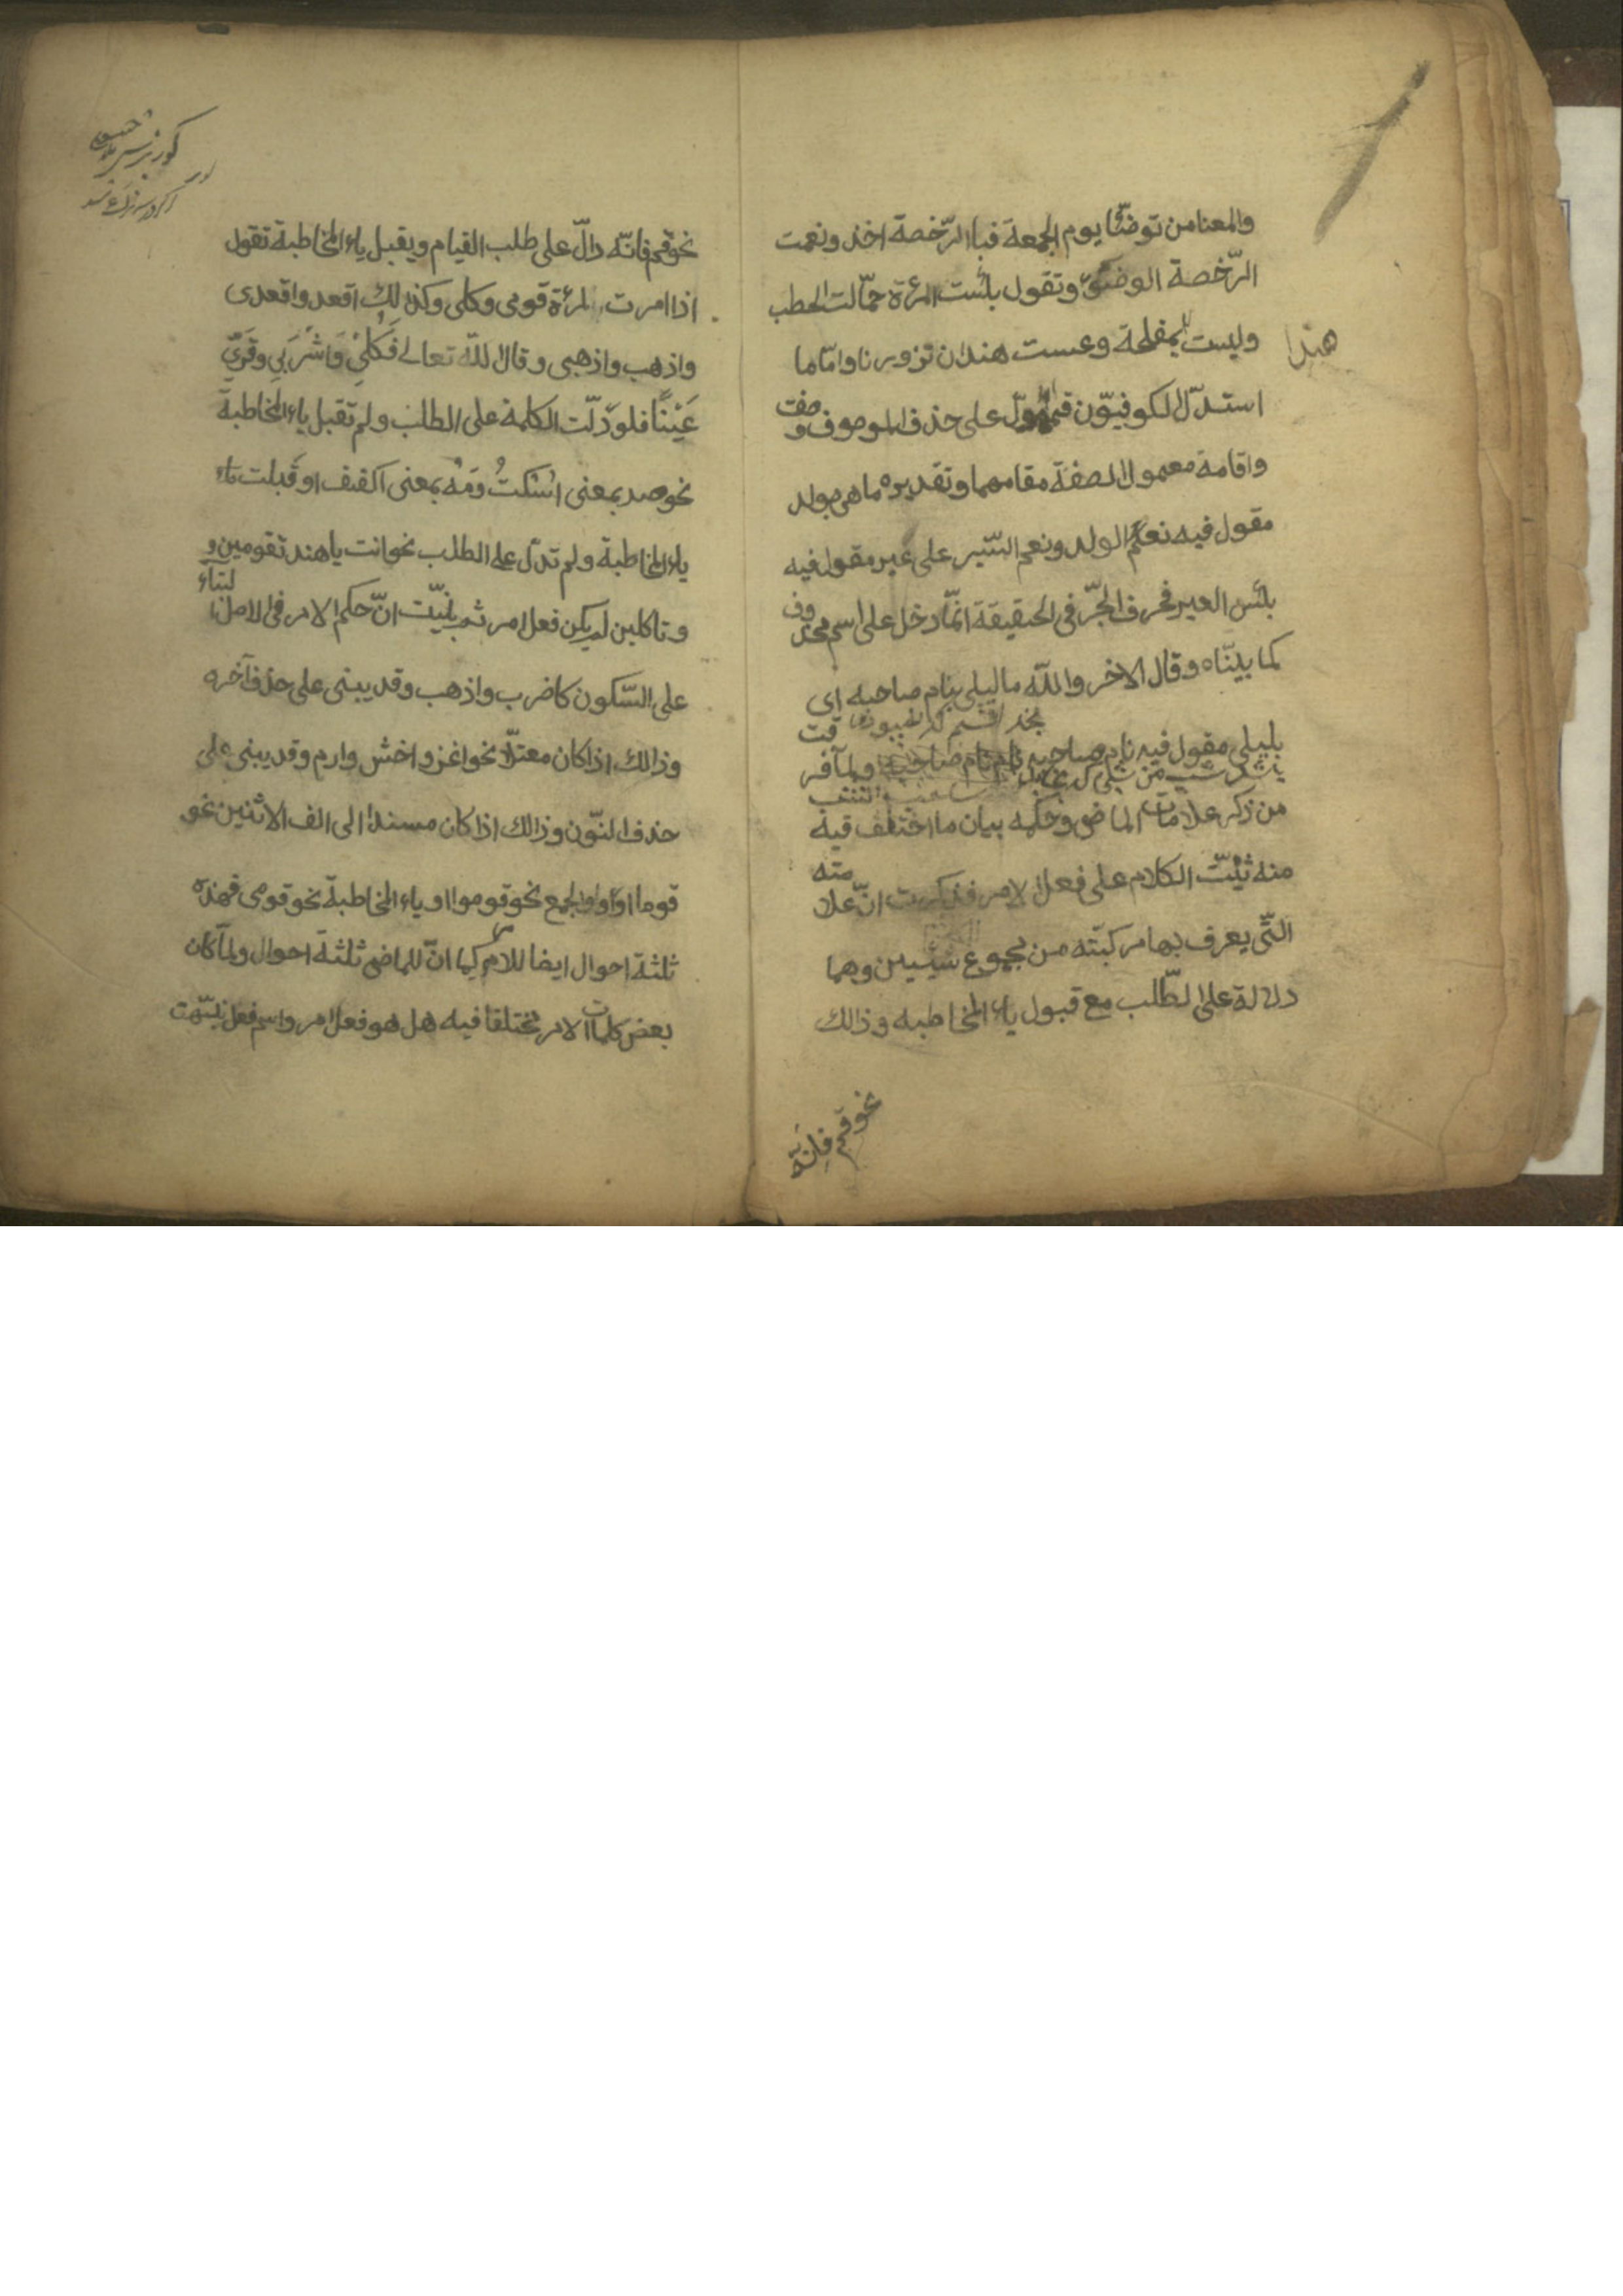 والمعنا من توضّأ يوم الجمعة فبا الرّخصة اخذ ونعمت
الرّخصة الوضوء وتقول بئست المرءة حمّالت الحطب
وليست بمفلحة وعست هند ان تزورنا وامّا ما
هندا
استدلّ الكوفيّون على حذف الموصوف وصفت
واقامة معمول الصفة مقامهما وتقديره ما هى بولد
مقول فيه نعم الولد ونعم السّير على عير مقول فيه
بئس العير فحرف الجرّ فى الحقيقة انمّا دخل على اسم محذوف
كما بيّنّاه وقال الاخر واللّه ما ليلى بنام صاحبه اى
بليلى مقول فيه نام صاحبه ولمّا فرقت
من ذكر علامات الماضى وحكمه بيان ما اختلف فيه
منه ثنّيت الكلام على فعل الامر فذكرت انّ علامته
التّى يعرف بها مركبّته من مجموع شيئين وهما
دلالة على الطّلب مع قبول ياء المخاطبه وذالك
نحو قم فانّه
نحو قم فانّه دالّ على طلب القيام ويقبل ياء المخاطبة تقول
اذا امرت المرءة قومى وكلى وكذلك اقعد واقعدى
واذهب واذهبى وقال اللّه تعالى فَكُلىِ وَاشْرَبىِ وقَرّىِ
عَيْنًا فلو دلّت الكلمة على الطلب ولم تقبل ياء المخاطبة
نحو صه بمعنى اسْكتُ ومَهْ بمعنى اكفف او قبلت
ياء المخاطبة ولم تدلّ على الطلب نحو انت يا هند تقومين و
وتاكلين لم يكن فعل امر ثم بيّنت انّ حكم الامر فى الاصل البناء
على السّكون كاضرب واذهب وقد يبنى على حذف آخره
وذالك اذا كان معتلّا نحو اغز واخش وارم وقد يبنى على
حذف النّون وذالك اذا كان مسندا الى الف الاثنين نحو
قوما او واو الجمع نحو قوموا او ياء المخاطبة نحو قومى فهذه
ثلثة احوال ايضا للامر كما انّ للماضى ثلثة احوال ولمّا كان
بعض كلمات الامر مختلفا فيه هل هو فعل امر واسم فعل نبّهت